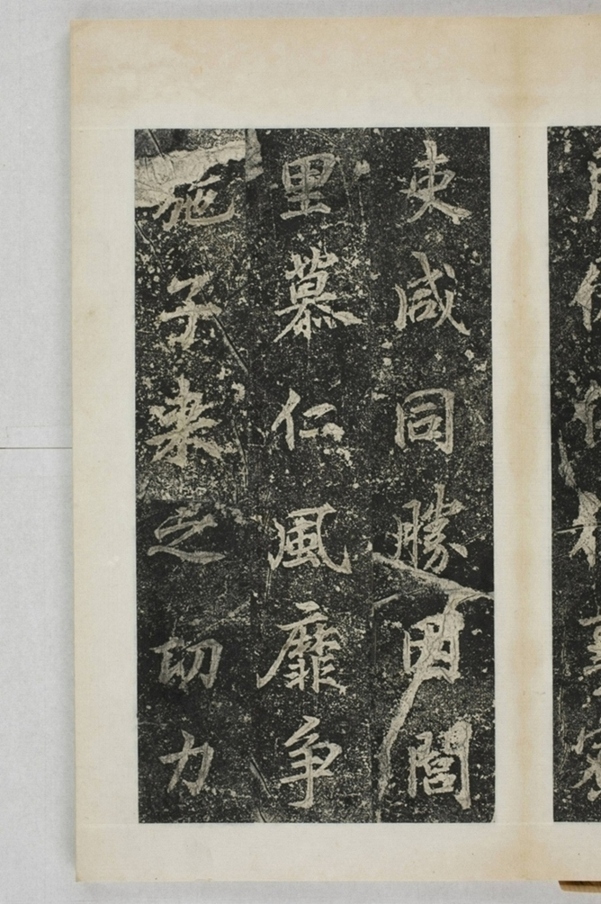 吏咸同勝因閭
里慕仁風靡争
施子来之功力